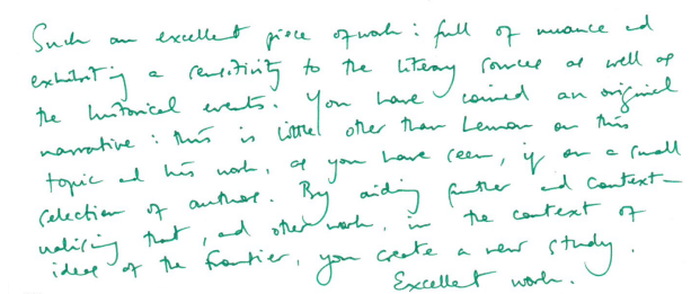 Such an excellent piece of work : full of nuance and
exhibiting a sensitivity to the literary sources as well as
the historical events. You have coined an original
narrative : this is little other than Lemon on this
topic and his work, as you have seen, is on a small
selection of authors. By aiding further and context-
ualising that, and other work, in the context of
ideas of the frontier, you create a new study.
Excellent work.